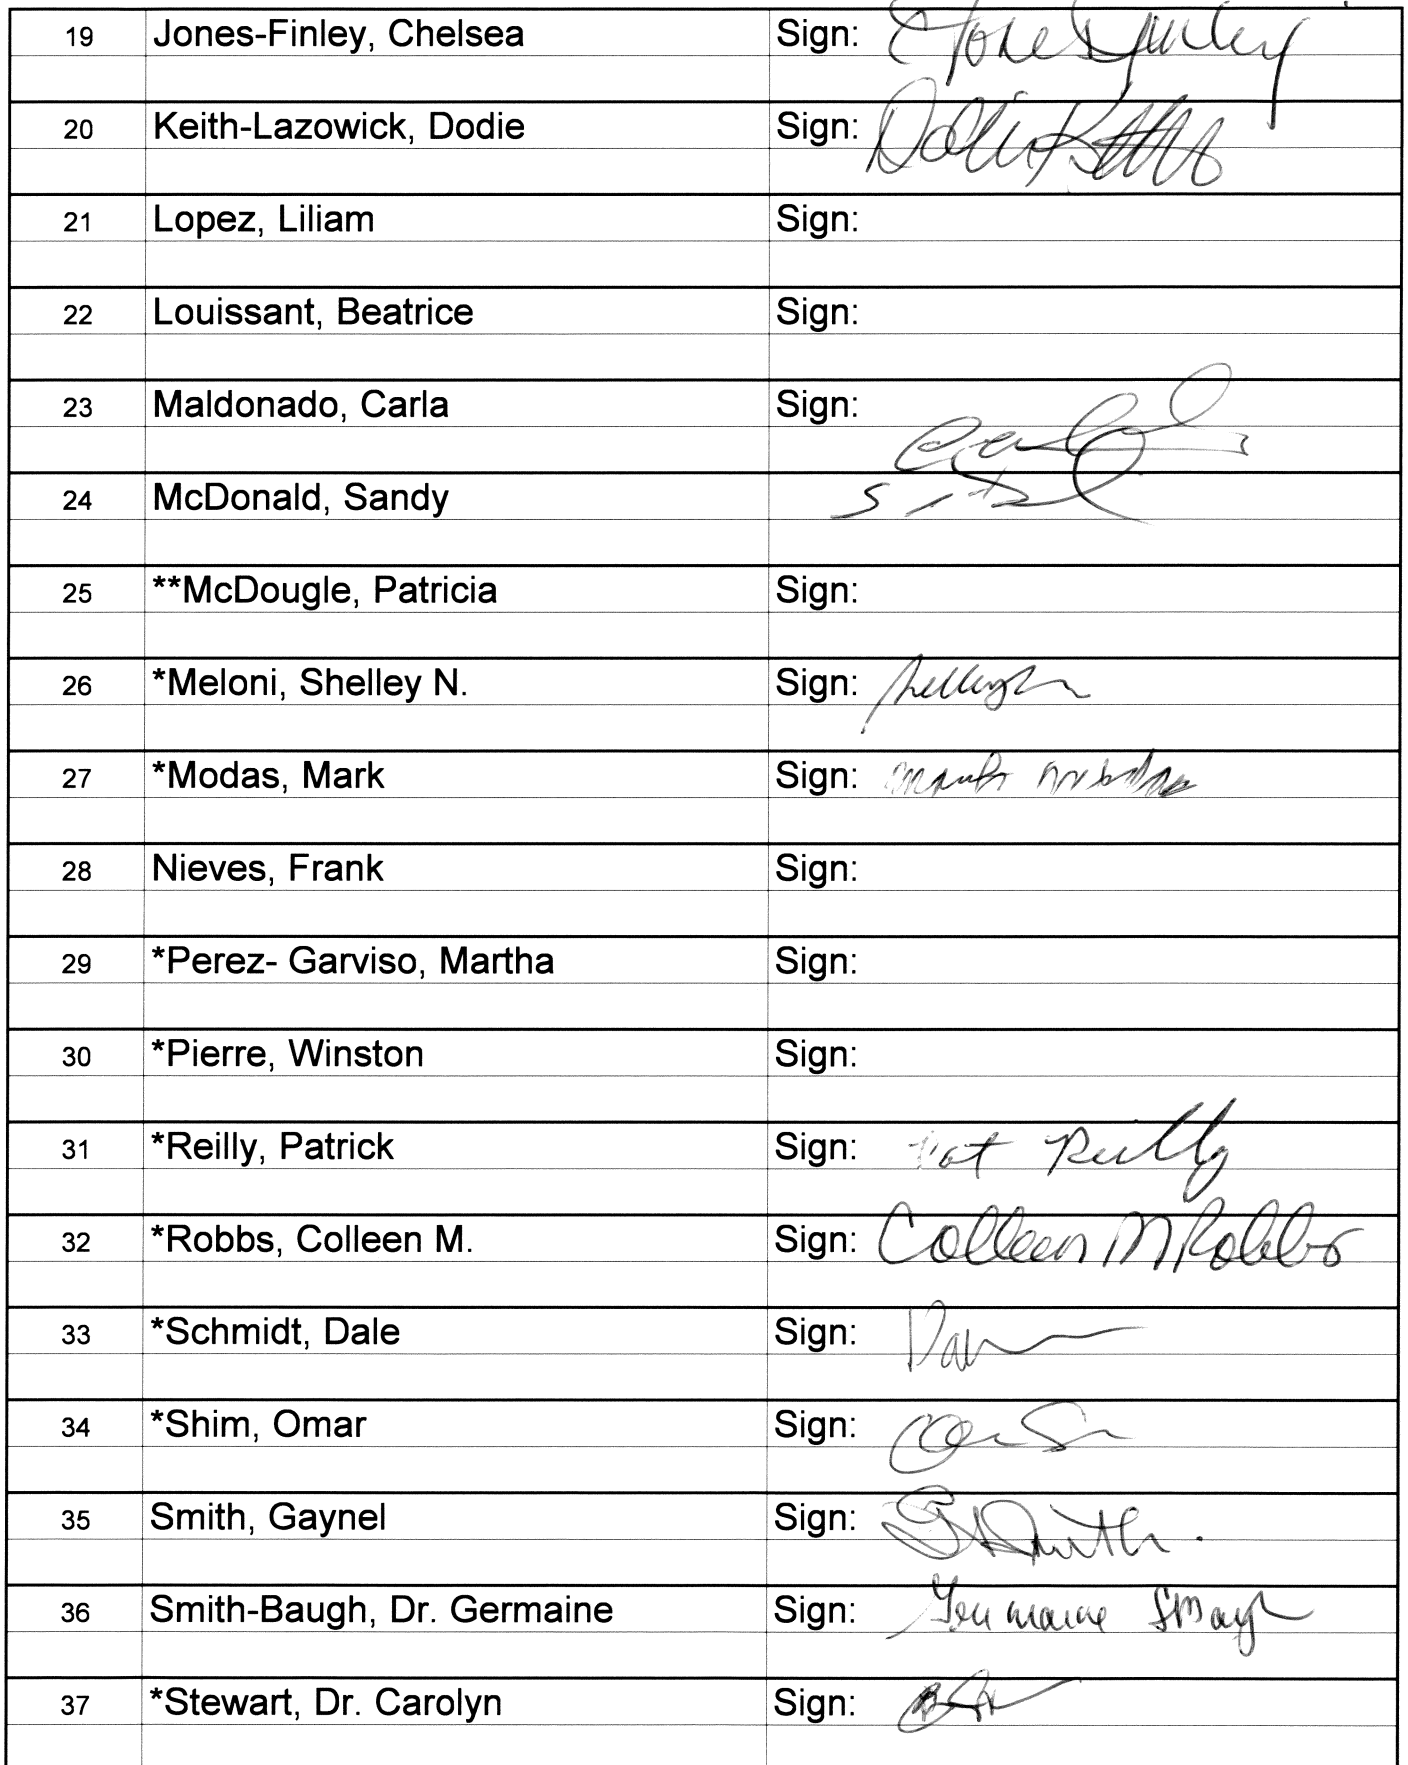 19 Jones-Finley, Chelsea Sign: CJones Finley
20 Keith-Lazowick, Dodie Sign:
21 Lopez, Liliam Sign:
22 Louissant, Beatrice Sign:
23 Maldonado, Carla Sign:
24 McDonald, Sandy
25 **McDougle, Patricia Sign:
26 *Meloni, Shelley N. Sign:
27 *Modas, Mark Sign: Mark Modas
28 Nieves, Frank Sign:
29 *Perez- Garviso, Martha Sign:
30 *Pierre, Winston Sign:
31 *Reilly, Patrick Sign: Pat Reilly
32 *Robbs, Colleen M. Sign: Colleen M Robbs
33 *Schmidt, Dale Sign:
34 *Shim, Omar Sign:
35 Smith, Gaynel Sign: Smith
36 Smith-Baugh, Dr. Germaine Sign: Germaine
37 *Stewart, Dr. Carolyn Sign: